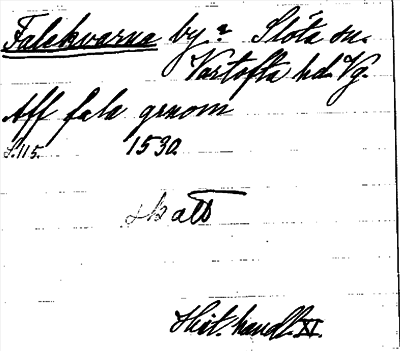 Falekvarna by? Slöta sn.
Vartofta hd. Vg.
Aff fala genom
S. 115. 1530.
skatt
Hist. handl. XI.